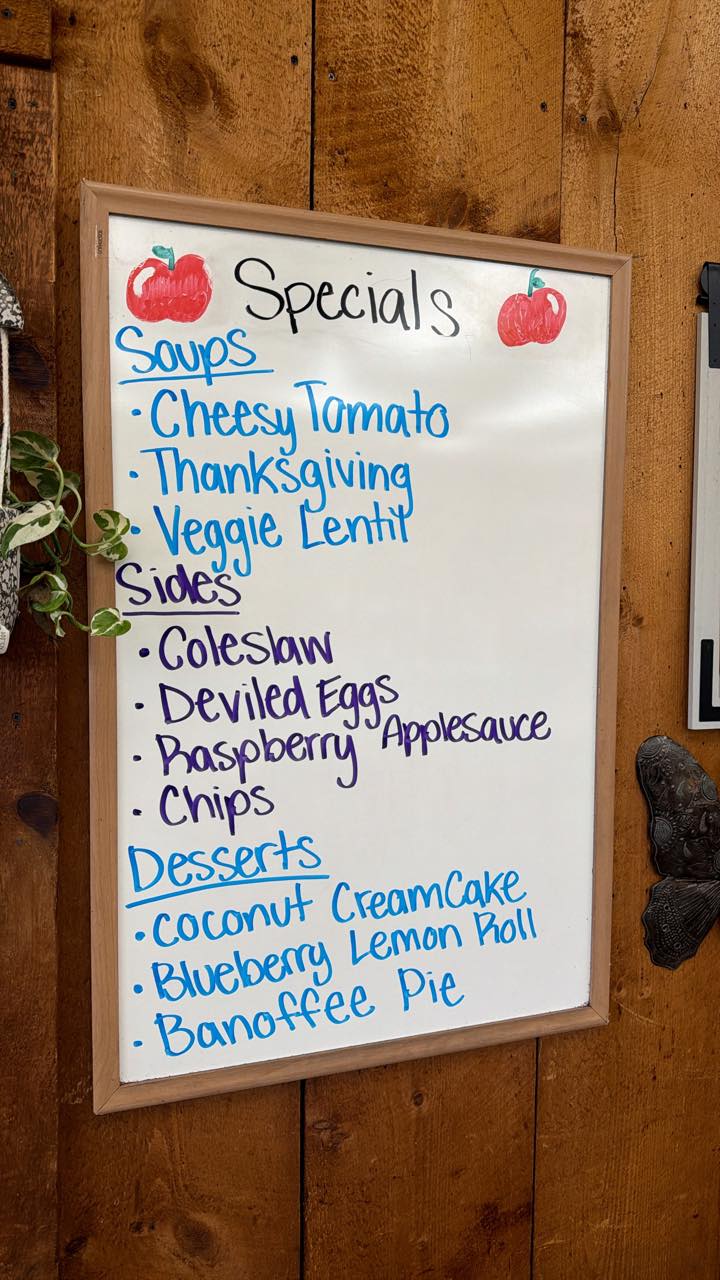 Specials
Soups
· Cheesy Tomato
· Thanksgiving
· Veggie Lentil
Sides
· Coleslaw
· Deviled Eggs
· Raspberry Applesauce
· Chips
Desserts
· Coconut Cream Cake
· Blueberry Lemon Roll
· Banoffee Pie